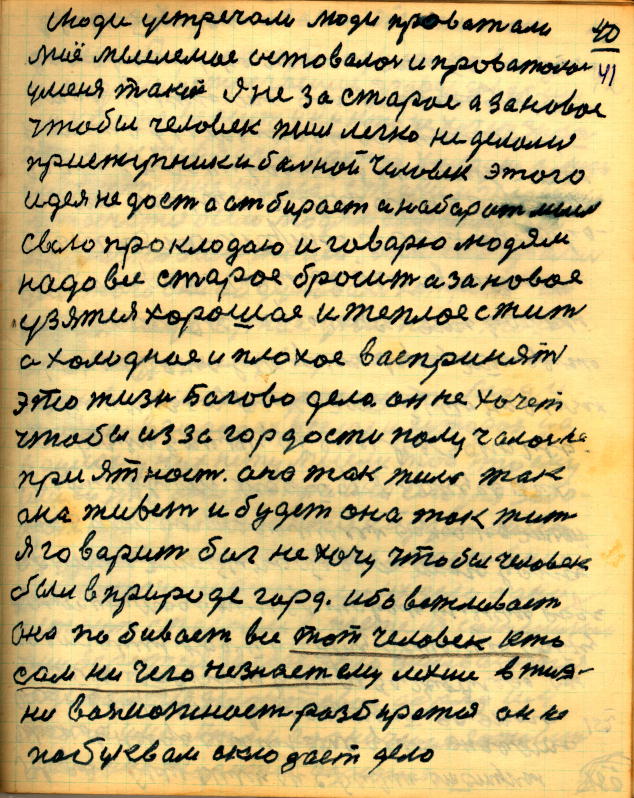 люди устречали люди проватали 40
маё мыслемае астовалос и праваталас 41
уменя такие Я не за старае а зановое
чтобы человек жил легко не делолся
приступником бамной Человек этого
идея не дост а отбирает а набарот
село проклодаю и говарю людям
надо вы старое бросит а за новоя
узятся хорошае и теплое стит
а холоднае и плохое васпринят
это жизн Багово дела он не хочет
чтобы из за гордости получалос не
приятност. она так жила так
она живет и будет она так жит
я говарит бог не хочу чтобы человек
были в природе горд. ибо
она побивает вы тот человек кто
сам ни чего незнает ему лехше в жиз-
ни важможност разбиратся он не
по буквам складает дело